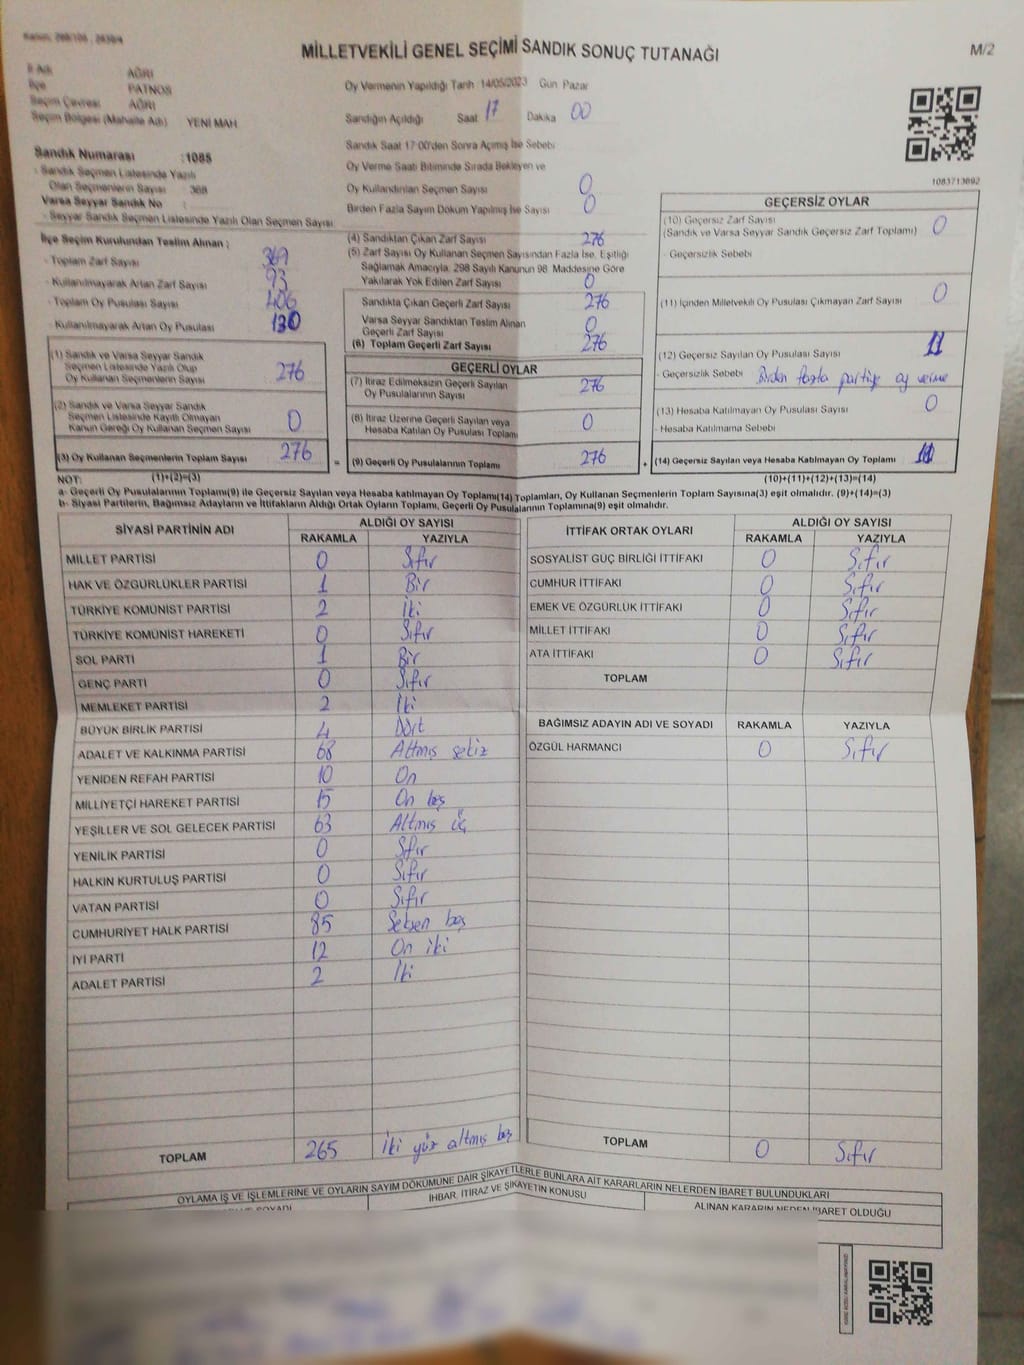 MİLLETVEKİLİ GENEL SEÇİMİ SANDIK SONUÇ TUTANAĞI
M/2
İl Adı AĞRI
İlçe PATNOS
Seçim Çevresi AĞRI
Seçim Bölgesi (Mahalle Adı) YENİ MAH
Sandık Numarası :1085
- Sandık Seçmen Listesinde Yazılı
Olan Seçmenlerin Sayısı : 368
Varsa Seyyar Sandık No :
- Seyyar Sandık Seçmen Listesinde Yazılı Olan Seçmen Sayısı
İlçe Seçim Kurulundan Teslim Alınan ;
- Toplam Zarf Sayısı 369
- Kullanılmayarak Artan Zarf Sayısı 93
- Toplam Oy Pusulası Sayısı 406
- Kullanılmayarak Artan Oy Pusulası 130
(1) Sandık ve Varsa Seyyar Sandık
Seçmen Listesinde Yazılı Olup
Oy Kullanan Seçmenlerin Sayısı 276
(2) Sandık ve Varsa Seyyar Sandık
Seçmen Listesinde Kayıtlı Olmayan
Kanun Gereği Oy Kullanan Seçmen Sayısı 0
(3) Oy Kullanan Seçmenlerin Toplam Sayısı 276
Oy Vermenin Yapıldığı Tarih 14/05/2023 Gün Pazar
Sandığın Açıldığı Saat 17 Dakika 00
Sandık Saat 17:00'den Sonra Açılmış İse Sebebi
Oy Verme Saati Bitiminde Sırada Bekleyen ve
Oy Kullandırılan Seçmen Sayısı 0
Birden Fazla Sayım Döküm Yapılmış İse Sayısı 0
(4) Sandıktan Çıkan Zarf Sayısı 276
(5) Zarf Sayısı Oy Kullanan Seçmen Sayısından Fazla İse, Eşitliği
Sağlamak Amacıyla, 298 Sayılı Kanunun 98. Maddesine Göre
Yakılarak Yok Edilen Zarf Sayısı 0
Sandıkta Çıkan Geçerli Zarf Sayısı 276
Varsa Seyyar Sandıktan Teslim Alınan
Geçerli Zarf Sayısı 0
(6) Toplam Geçerli Zarf Sayısı 276
GEÇERLİ OYLAR
(7) İtiraz Edilmeksizin Geçerli Sayılan
Oy Pusulalarının Sayısı 276
(8) İtiraz Üzerine Geçerli Sayılan veya
Hesaba Katılan Oy Pusulası Toplamı 0
= (9) Geçerli Oy Pusulalarının Toplamı 276
1083713692
GEÇERSİZ OYLAR
(10) Geçersiz Zarf Sayısı 0
(Sandık ve Varsa Seyyar Sandık Geçersiz Zarf Toplamı)
- Geçersizlik Sebebi
(11) İçinden Milletvekili Oy Pusulası Çıkmayan Zarf Sayısı 0
(12) Geçersiz Sayılan Oy Pusulası Sayısı 11
- Geçersizlik Sebebi Birden fazla partiye oy verme
(13) Hesaba Katılmayan Oy Pusulası Sayısı 0
- Hesaba Katılmama Sebebi
+ (14) Geçersiz Sayılan veya Hesaba Katılmayan Oy Toplamı 11
NOT: (1)+(2)=(3) (10)+(11)+(12)+(13)=(14)
a- Geçerli Oy Pusulalarının Toplamı(9) ile Geçersiz Sayılan veya Hesaba katılmayan Oy Toplamı(14) Toplamları, Oy Kullanan Seçmenlerin Toplam Sayısına(3) eşit olmalıdır. (9)+(14)=(3)
b- Siyasi Partilerin, Bağımsız Adayların ve İttifakların Aldığı Ortak Oyların Toplamı, Geçerli Oy Pusulalarının Toplamına(9) eşit olmalıdır.
SİYASİ PARTİNİN ADI ALDIĞI OY SAYISI
RAKAMLA YAZIYLA
MİLLET PARTİSİ 0 Sıfır
HAK VE ÖZGÜRLÜKLER PARTİSİ 1 Bir
TÜRKİYE KOMÜNİST PARTİSİ 2 İki
TÜRKİYE KOMÜNİST HAREKETİ 0 Sıfır
SOL PARTİ 1 Bir
GENÇ PARTİ 0 Sıfır
MEMLEKET PARTİSİ 2 İki
BÜYÜK BİRLİK PARTİSİ 4 Dört
ADALET VE KALKINMA PARTİSİ 68 Altmış sekiz
YENİDEN REFAH PARTİSİ 10 On
MİLLİYETÇİ HAREKET PARTİSİ 15 On beş
YEŞİLLER VE SOL GELECEK PARTİSİ 63 Altmış üç
YENİLİK PARTİSİ 0 Sıfır
HALKIN KURTULUŞ PARTİSİ 0 Sıfır
VATAN PARTİSİ 0 Sıfır
CUMHURİYET HALK PARTİSİ 85 Seksen beş
İYİ PARTİ 12 On iki
ADALET PARTİSİ 2 İki
TOPLAM 265 İki yüz altmış beş
İTTİFAK ORTAK OYLARI ALDIĞI OY SAYISI
RAKAMLA YAZIYLA
SOSYALİST GÜÇ BİRLİĞİ İTTİFAKI 0 Sıfır
CUMHUR İTTİFAKI 0 Sıfır
EMEK VE ÖZGÜRLÜK İTTİFAKI 0 Sıfır
MİLLET İTTİFAKI 0 Sıfır
ATA İTTİFAKI 0 Sıfır
TOPLAM
BAĞIMSIZ ADAYIN ADI VE SOYADI RAKAMLA YAZIYLA
ÖZGÜL HARMANCI 0 Sıfır
TOPLAM 0 Sıfır
OYLAMA İŞ VE İŞLEMLERİNE VE OYLARIN SAYIM DÖKÜMÜNE DAİR ŞİKAYETLERLE BUNLARA AİT KARARLARIN NELERDEN İBARET BULUNDUKLARI
SOYADI İHBAR, İTİRAZ VE ŞİKAYETİN KONUSU ALINAN KARARIN NEDEN İBARET OLDUĞU